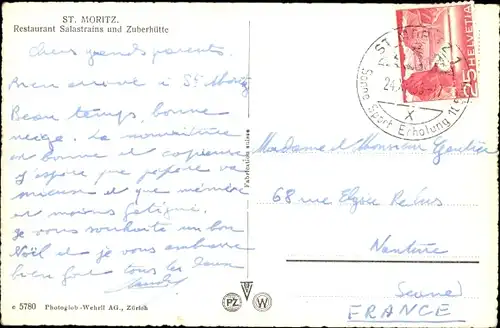 ST. MORITZ.
Restaurant Salastrains und Zuberhütte
Chers grands parents.
Bien arrivé à St Moritz
Beau temps, bonne
neige. La nourriture
est bonne et copieuse
J'espère que pépère va
mieux et que mémère
est moins fatigué.
Je vous souhaite un bon
Noël et je vous embrasse
bien fort tous les deux
c 5780 Photoglob-Wehrli AG., Zürich
Fabrication suisse
PZ W
ST. MORITZ
24.X
Sonne Sport Erholung
HELVETIA
25
Madame et Monsieur Gautier
68 rue Elysée Reclus
Nanterre
Seine
FRANCE